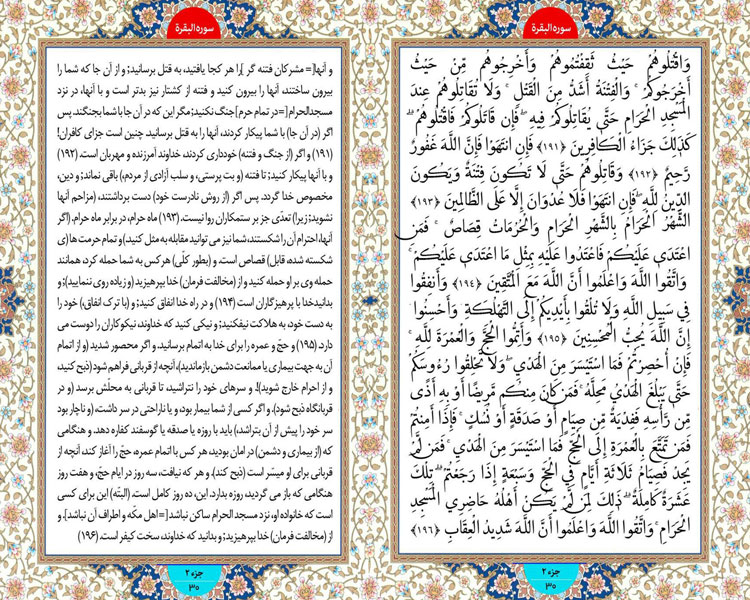 سوره‌البقرة
وَاقْتُلُوهُمْ حَيْثُ ثَقِفْتُمُوهُمْ وَأَخْرِجُوهُم مِّنْ حَيْثُ
أَخْرَجُوكُمْ ۚ وَالْفِتْنَةُ أَشَدُّ مِنَ الْقَتْلِ ۚ وَلَا تُقَاتِلُوهُمْ عِندَ
الْمَسْجِدِ الْحَرَامِ حَتَّىٰ يُقَاتِلُوكُمْ فِيهِ ۖ فَإِن قَاتَلُوكُمْ فَاقْتُلُوهُمْ ۗ
كَذَٰلِكَ جَزَاءُ الْكَافِرِينَ ﴿١٩١﴾ فَإِنِ انتَهَوْا فَإِنَّ اللَّهَ غَفُورٌ
رَّحِيمٌ ﴿١٩٢﴾ وَقَاتِلُوهُمْ حَتَّىٰ لَا تَكُونَ فِتْنَةٌ وَيَكُونَ
الدِّينُ لِلَّهِ ۖ فَإِنِ انتَهَوْا فَلَا عُدْوَانَ إِلَّا عَلَى الظَّالِمِينَ ﴿١٩٣﴾
الشَّهْرُ الْحَرَامُ بِالشَّهْرِ الْحَرَامِ وَالْحُرُمَاتُ قِصَاصٌ ۚ فَمَنِ
اعْتَدَىٰ عَلَيْكُمْ فَاعْتَدُوا عَلَيْهِ بِمِثْلِ مَا اعْتَدَىٰ عَلَيْكُمْ ۚ
وَاتَّقُوا اللَّهَ وَاعْلَمُوا أَنَّ اللَّهَ مَعَ الْمُتَّقِينَ ﴿١٩٤﴾ وَأَنفِقُوا
فِي سَبِيلِ اللَّهِ وَلَا تُلْقُوا بِأَيْدِيكُمْ إِلَى التَّهْلُكَةِ ۛ وَأَحْسِنُوا ۛ
إِنَّ اللَّهَ يُحِبُّ الْمُحْسِنِينَ ﴿١٩٥﴾ وَأَتِمُّوا الْحَجَّ وَالْعُمْرَةَ لِلَّهِ ۚ
فَإِنْ أُحْصِرْتُمْ فَمَا اسْتَيْسَرَ مِنَ الْهَدْيِ ۖ وَلَا تَحْلِقُوا رُءُوسَكُمْ
حَتَّىٰ يَبْلُغَ الْهَدْيُ مَحِلَّهُ ۚ فَمَن كَانَ مِنكُم مَّرِيضًا أَوْ بِهِ أَذًى
مِّن رَّأْسِهِ فَفِدْيَةٌ مِّن صِيَامٍ أَوْ صَدَقَةٍ أَوْ نُسُكٍ ۚ فَإِذَا أَمِنتُمْ
فَمَن تَمَتَّعَ بِالْعُمْرَةِ إِلَى الْحَجِّ فَمَا اسْتَيْسَرَ مِنَ الْهَدْيِ ۚ فَمَن لَّمْ
يَجِدْ فَصِيَامُ ثَلَاثَةِ أَيَّامٍ فِي الْحَجِّ وَسَبْعَةٍ إِذَا رَجَعْتُمْ ۗ تِلْكَ
عَشَرَةٌ كَامِلَةٌ ۗ ذَٰلِكَ لِمَن لَّمْ يَكُنْ أَهْلُهُ حَاضِرِي الْمَسْجِدِ
الْحَرَامِ ۚ وَاتَّقُوا اللَّهَ وَاعْلَمُوا أَنَّ اللَّهَ شَدِيدُ الْعِقَابِ ﴿١٩٦﴾
جزء ۲
۳۰
سوره‌البقرة
و آنها[= مشرکان فتنه گر ]را هر کجا یافتید، به قتل برسانید؛ و از آن جا که شما را
بیرون ساختند، آنها را بیرون کنید و فتنه از کشتار نیز بدتر است و با آنها، در نزد
مسجدالحرام [=در تمام حرم] جنگ نکنید؛ مگر این که در آن جا با شما بجنگند. پس
اگر (در آن جا) با شما پیکار کردند، آنها را به قتل برسانید. چنین است جزای کافران!
(۱۹۱) و اگر (از جنگ و فتنه) خودداری کردند، خداوند آمرزنده و مهربان است. (۱۹۲)
و با آنها پیکار کنید؛ تا فتنه (و بت پرستی، و سلب آزادی از مردم)، باقی نماند؛ و دین،
مخصوص خدا گردد. پس اگر (از روش نادرست خود) دست برداشتند، (مزاحم آنها
نشوید؛ زیرا) تعدّی جز بر ستمکاران روا نیست. (۱۹۳) ماه حرام، در برابر ماه حرام. (اگر
آنها، احترام آن را شکستند، شما نیز می توانید مقابله به مثل کنید) و تمام حرمت ها(ی
شکسته شده، قابل) قصاص است. و (بطور کلّی) هرکس به شما حمله کرد، همانند
حمله وی بر او حمله کنید و از (مخالفت فرمان) خدا بپرهیزید (و زیاده روی ننمایید)؛ و
بدانیدخدا با پرهیزگاران است (۱۹۴) و در راه خدا انفاق کنید؛ و (با ترک انفاق،) خود را
به دست خود، به هلاکت نیفکنید؛ و نیکی کنید که خداوند، نیکوکاران را دوست می
دارد. (۱۹۵) و حجّ و عمره را برای خدا به اتمام برسانید. و اگر محصور شدید (و از اتمام
آن به جهت بیماری یا ممانعت دشمن بازماندید)، آنچه از قربانی فراهم شود (ذبح کنید،
و از احرام خارج شوید)!. و سرهای خود را نتراشید، تا قربانی به محلّش برسد (و در
قربانگاه ذبح شود). و اگر کسی از شما بیمار بود، و یا ناراحتی در سر داشت، (و ناچار بود
سر خود را پیش از آن بتراشد،) باید با روزه یا صدقه یا گوسفند کفاره دهد. و هنگامی
که (از بیماری و دشمن) در امان بودید، هر کس با اتمام عمره، حجّ را آغاز کند، آنچه از
قربانی برای او میسّر است (ذبح کند). و هر که نیافت، سه روز در ایام حجّ، و هفت روز
هنگامی که باز می گردید، روزه بدارد. این، ده روز کامل است. (البتّه) این برای کسی
است که خانواده او، نزد مسجد الحرام ساکن نباشد [=اهل مکّه و اطراف آن نباشد]. و
از (مخالفت فرمان) خدا بپرهیزید؛ و بدانید که خداوند، سخت کیفر است. (۱۹۶)
جزء ۲
۳۰